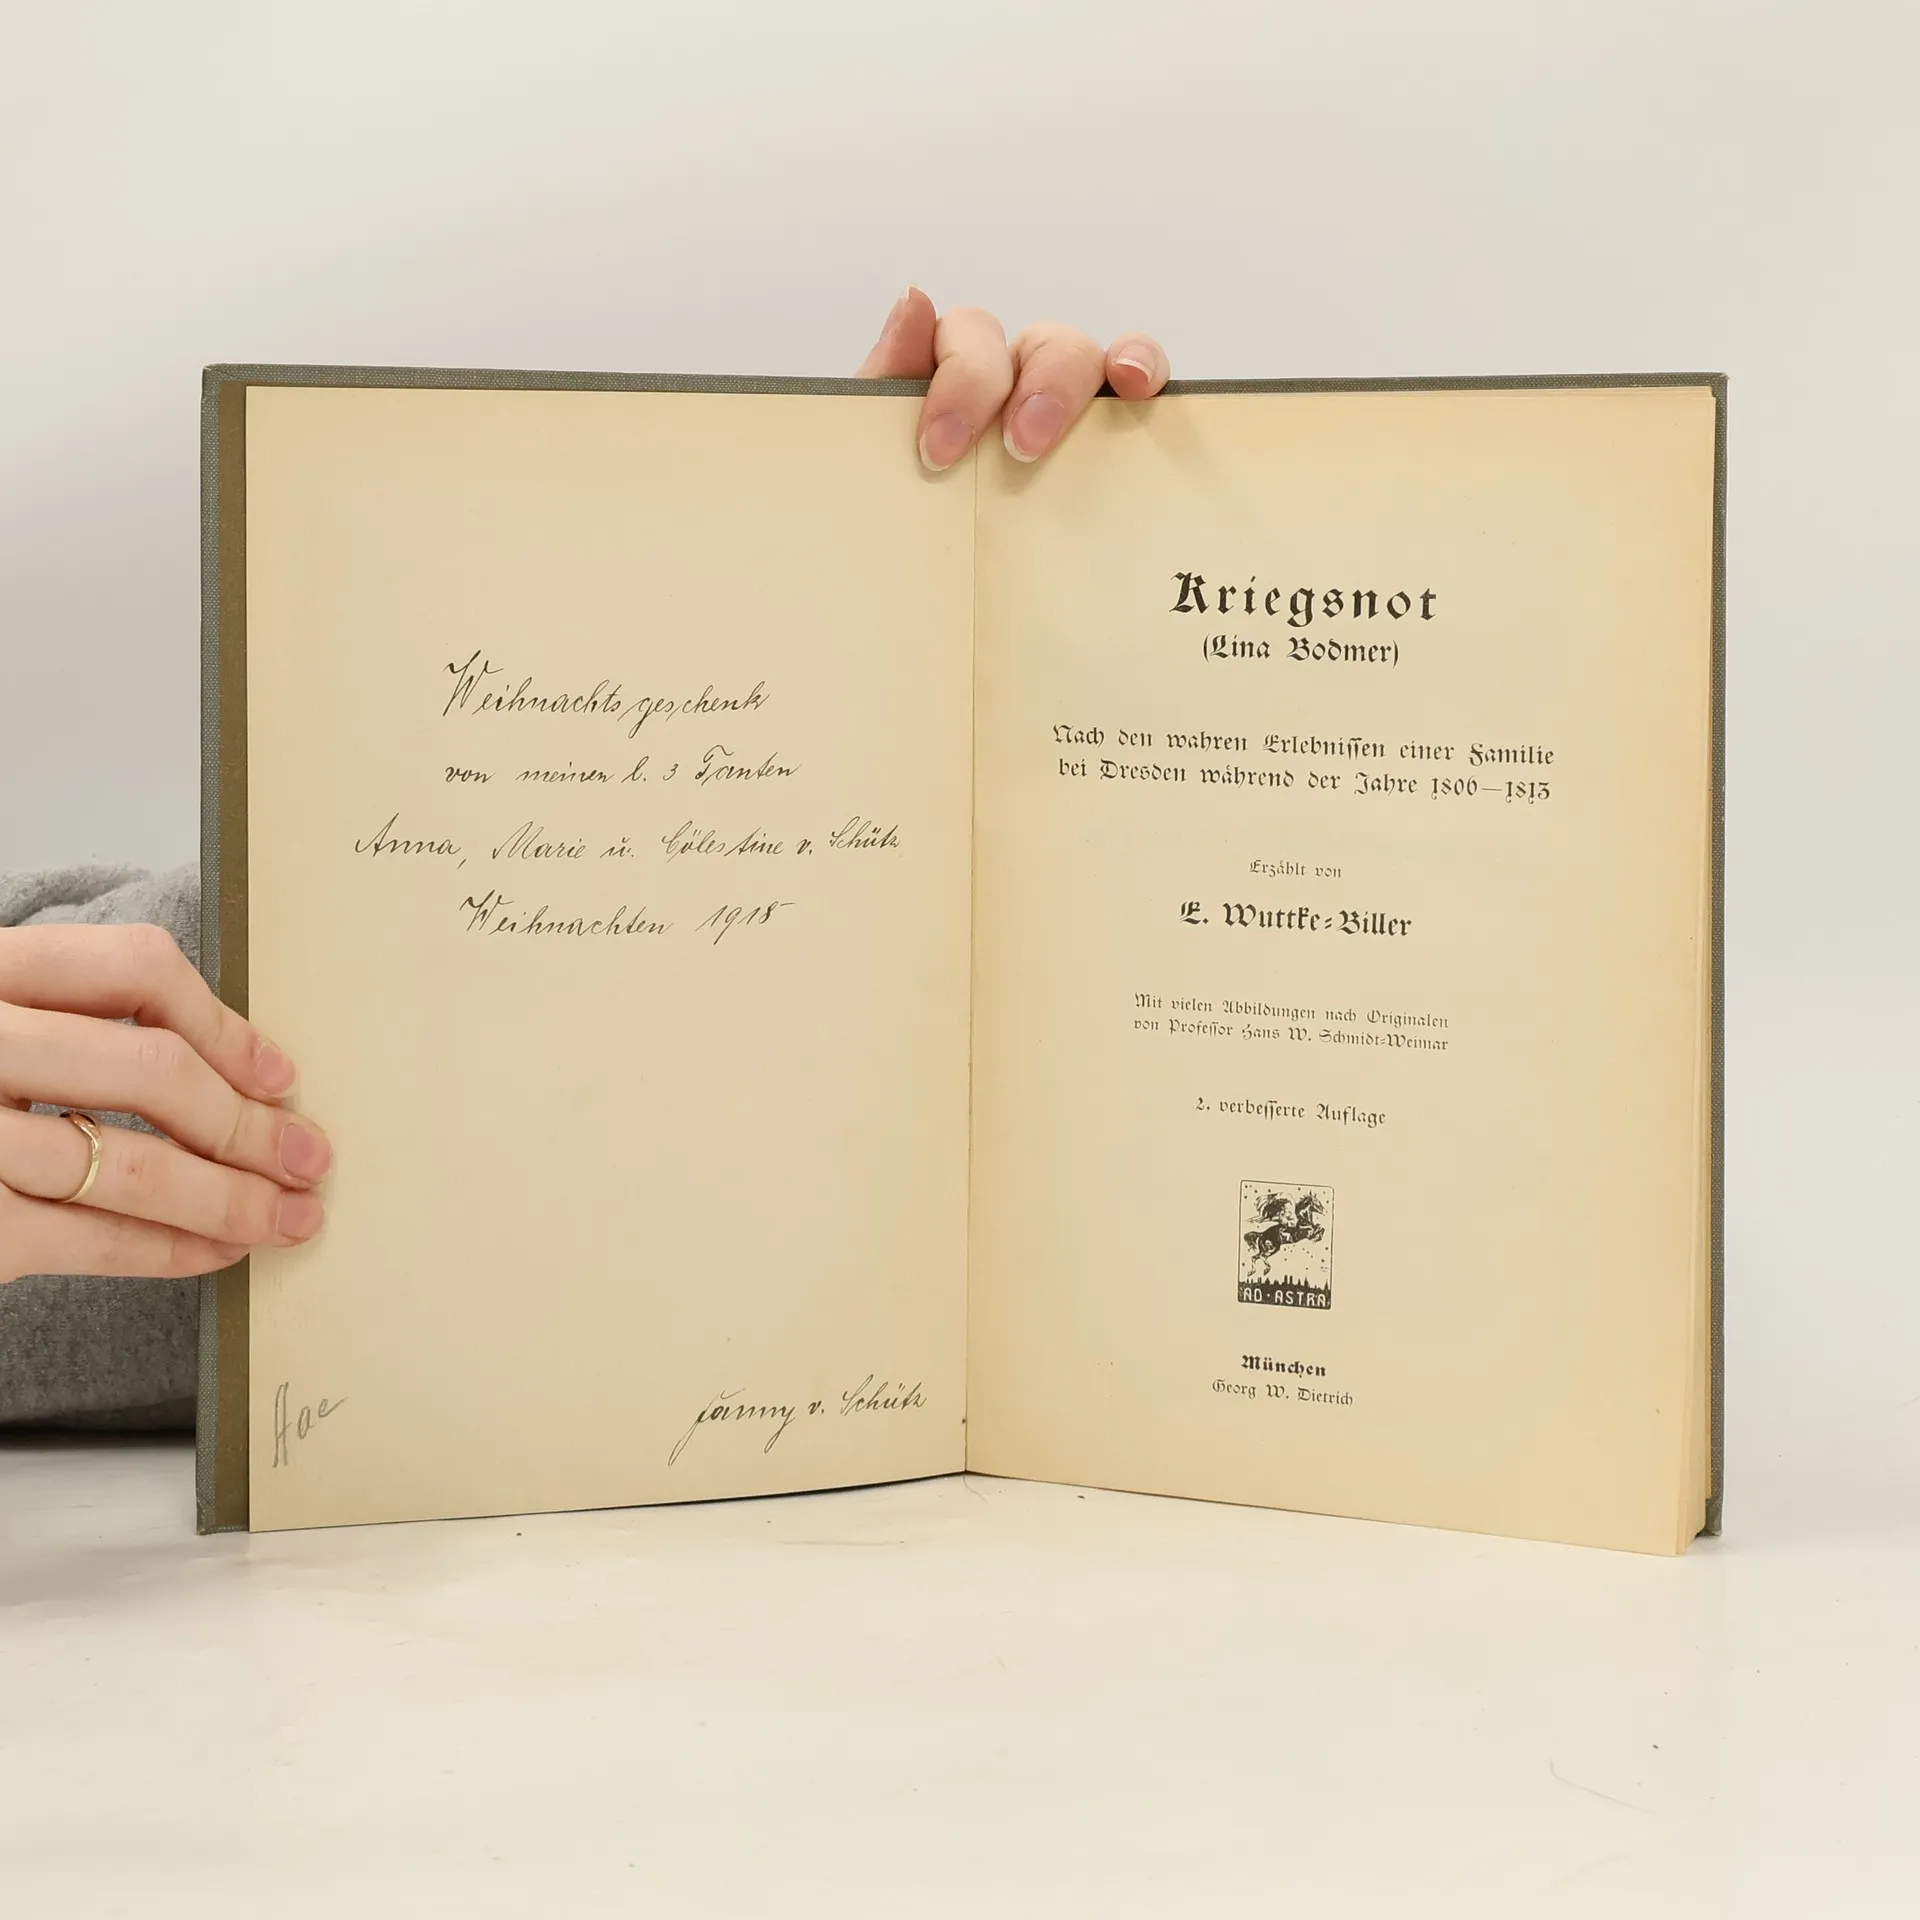 Weihnachtsgeschenk
von meinen l. 3 Tanten
Anna, Marie u. Cölestine v. Schütz
Weihnachten 1918
Fanny v. Schütz
Kriegsnot
(Lina Bodmer)
Nach den wahren Erlebnissen einer Familie
bei Dresden während der Jahre 1806—1813
Erzählt von
E. Wuttke-Biller
Mit vielen Abbildungen nach Originalen
von Professor Hans W. Schmidt-Weimar
2. verbesserte Auflage
AD·ASTRA
München
Georg W. Dietrich